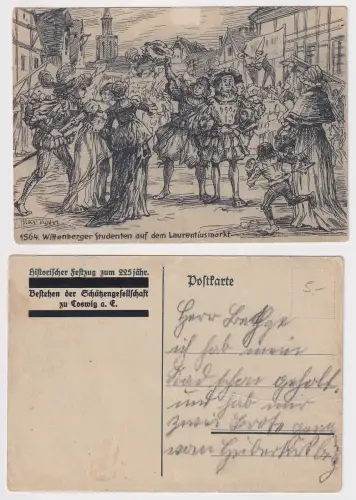 1564. Wittenberger Studenten auf dem Laurentiusmarkt.
Historischer Festzug zum 225jähr.
Bestehen der Schützengesellschaft
zu Coswig a. E.
Postkarte
5-
Herr
ich hab mein
Rad schon geholt
und hab mir
zwei Brote
von